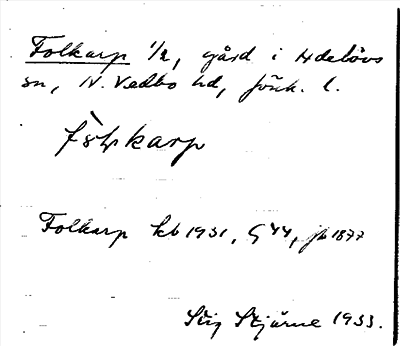 Folkarp 1/2, gård i Adelövs
sn, N. Vedbo hd, Jönk. l.
karp
Folkarp kb 1931, G 44, jb 1877
Stig Stjärne 1933.